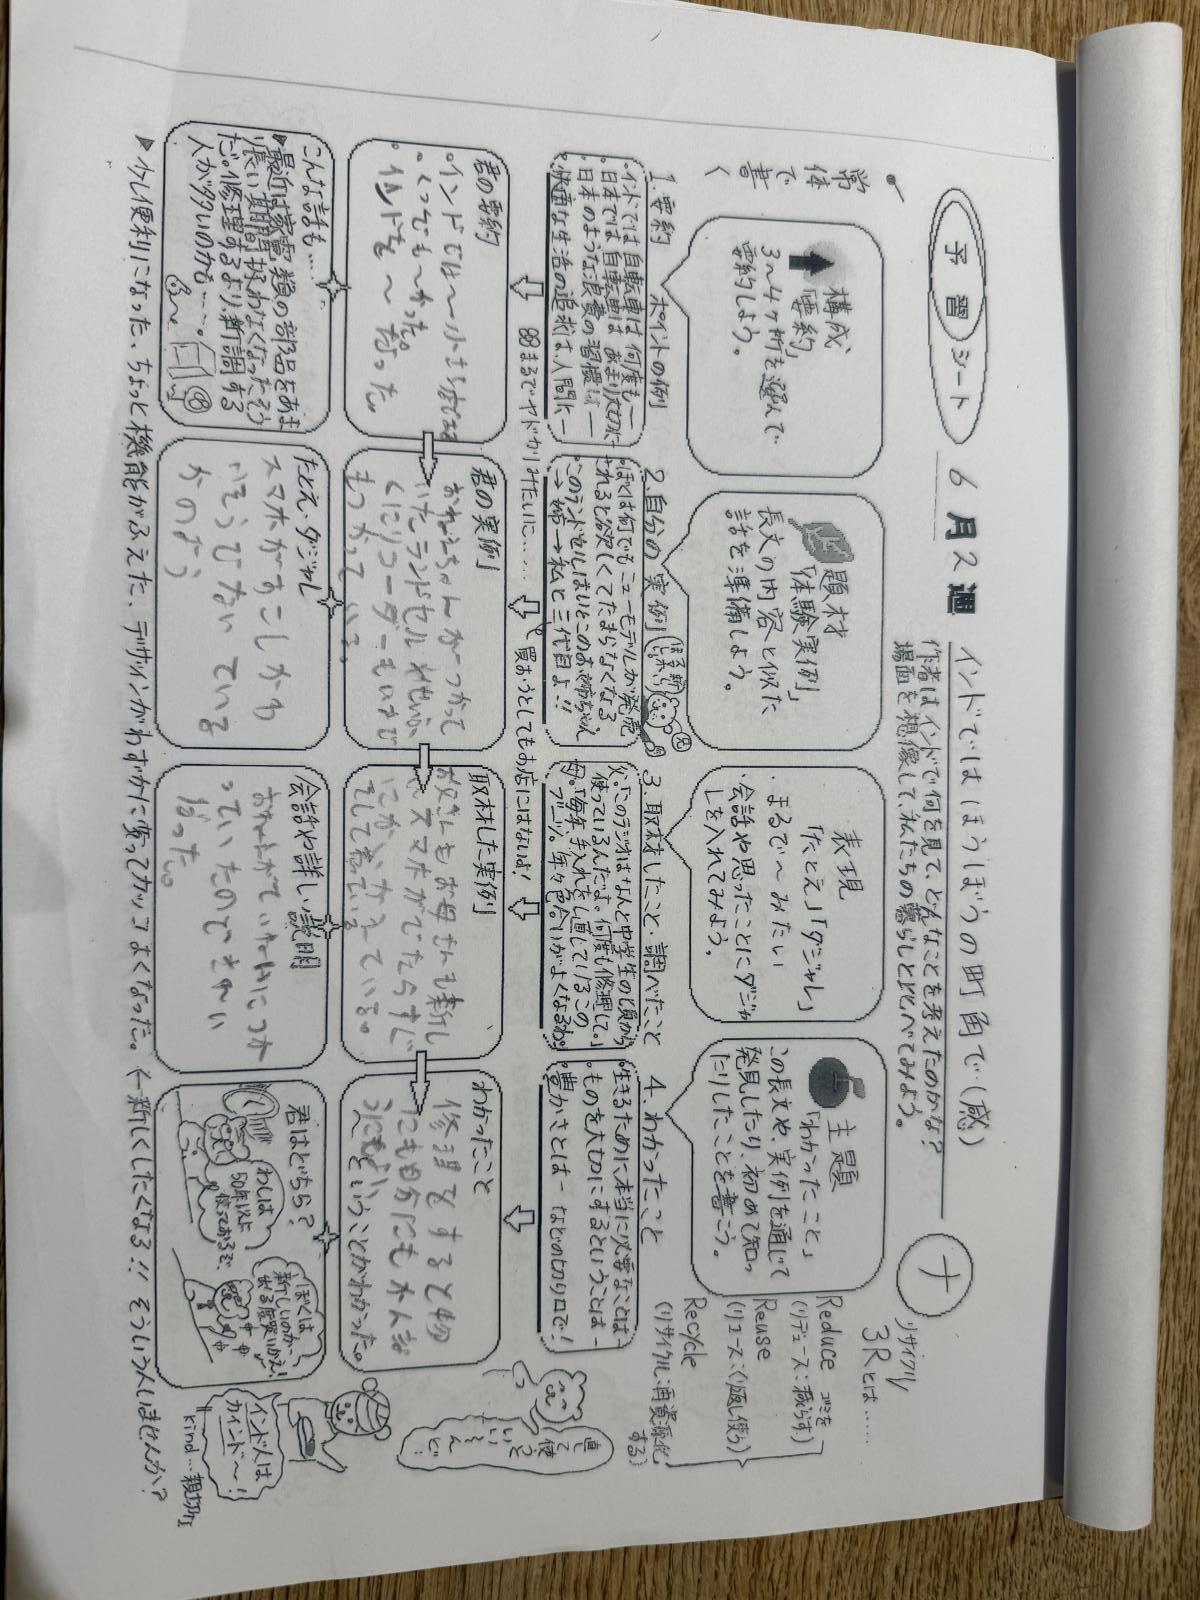 予習シート
6月2週
インドではほうぼうの町角で…(感)
作者はインドで何を見て、どんなことを考えたのかな？
場面を想像して、私たちの暮らしと比べてみよう。
ナ
リサイクル
3Rとは……
Reduce ゴミを
(リデュース：減らす)
Reuse
(リユース：くり返し使う)
Recycle
(リサイクル：再資源化する)
常体で書く
構成
「要約」
3〜4ヶ所を選んで
要約しよう。
題材
「体験実例」
長文の内容と似た
話を準備しよう。
表現
「たとえ」「ダジャレ」
・まるで〜みたい
・会話や思ったことにダジャ
レを入れてみよう。
主題
「わかったこと」
この長文や、実例を通じて
発見したり、初めて知っ
たりしたことを書こう。
1.要約 ポイントの例
・インドでは自転車は何度も―
・日本では自転車はあまり大切に―
・日本のような浪費の習慣は―
・快適な生活の追求は、人間に―
2.自分の実例
・ぼくは何でもニューモデルが発売
されると欲しくてたまらなくなる
・このランドセルはいとこのお姉ちゃん
→姉→私と三代目よ!!
3.取材したこと・調べたこと
父「このラジオはなんと中学生の頃から
使っているんだよ。何度も修理して。」
母「毎年、手入れをし直しているこの
ブーツ。年々色合いがよくなるわ。」
4.わかったこと
・生きるために本当に必要なことは―
・ものを大切にするということは―
・豊かさとは― などの切り口で！
買おうとしてもお店にはないよ！
君の要約
・インドでは〜小さな店
・くっても〜かった。
・インドも〜なった。
君の実例
おねえちゃんがつかって
いたランドセル
くにリコーダーもいまで
もつかっている。
取材した実例
お父さんもお母さんも新し
いスマホがでたらすぐ
にかいかえている。
わかったこと
修理をすると物
にも自分にも
ということがわかった。
直して使って
こんな話も…
▶最近は家電の部品をあま
り長い期間扱わなくなったそう
だ。修理するより新調する
人が多いのかも……。
たとえ・ダジャレ
スマホがすこしかわ
いそうでない ている
かのよう
会話や詳しい説明
つか
っていたので
君はどちら？
わしは
50年以上
使っておるぞ。
ぼくは
新しいのが
インド人は
カインド〜！
kind…親切な
▶少し便利になった、ちょっと機能がふえた、デザインがわずかに変ってカッコよくなった。←新しくしたくなる!! そういう人いませんか？